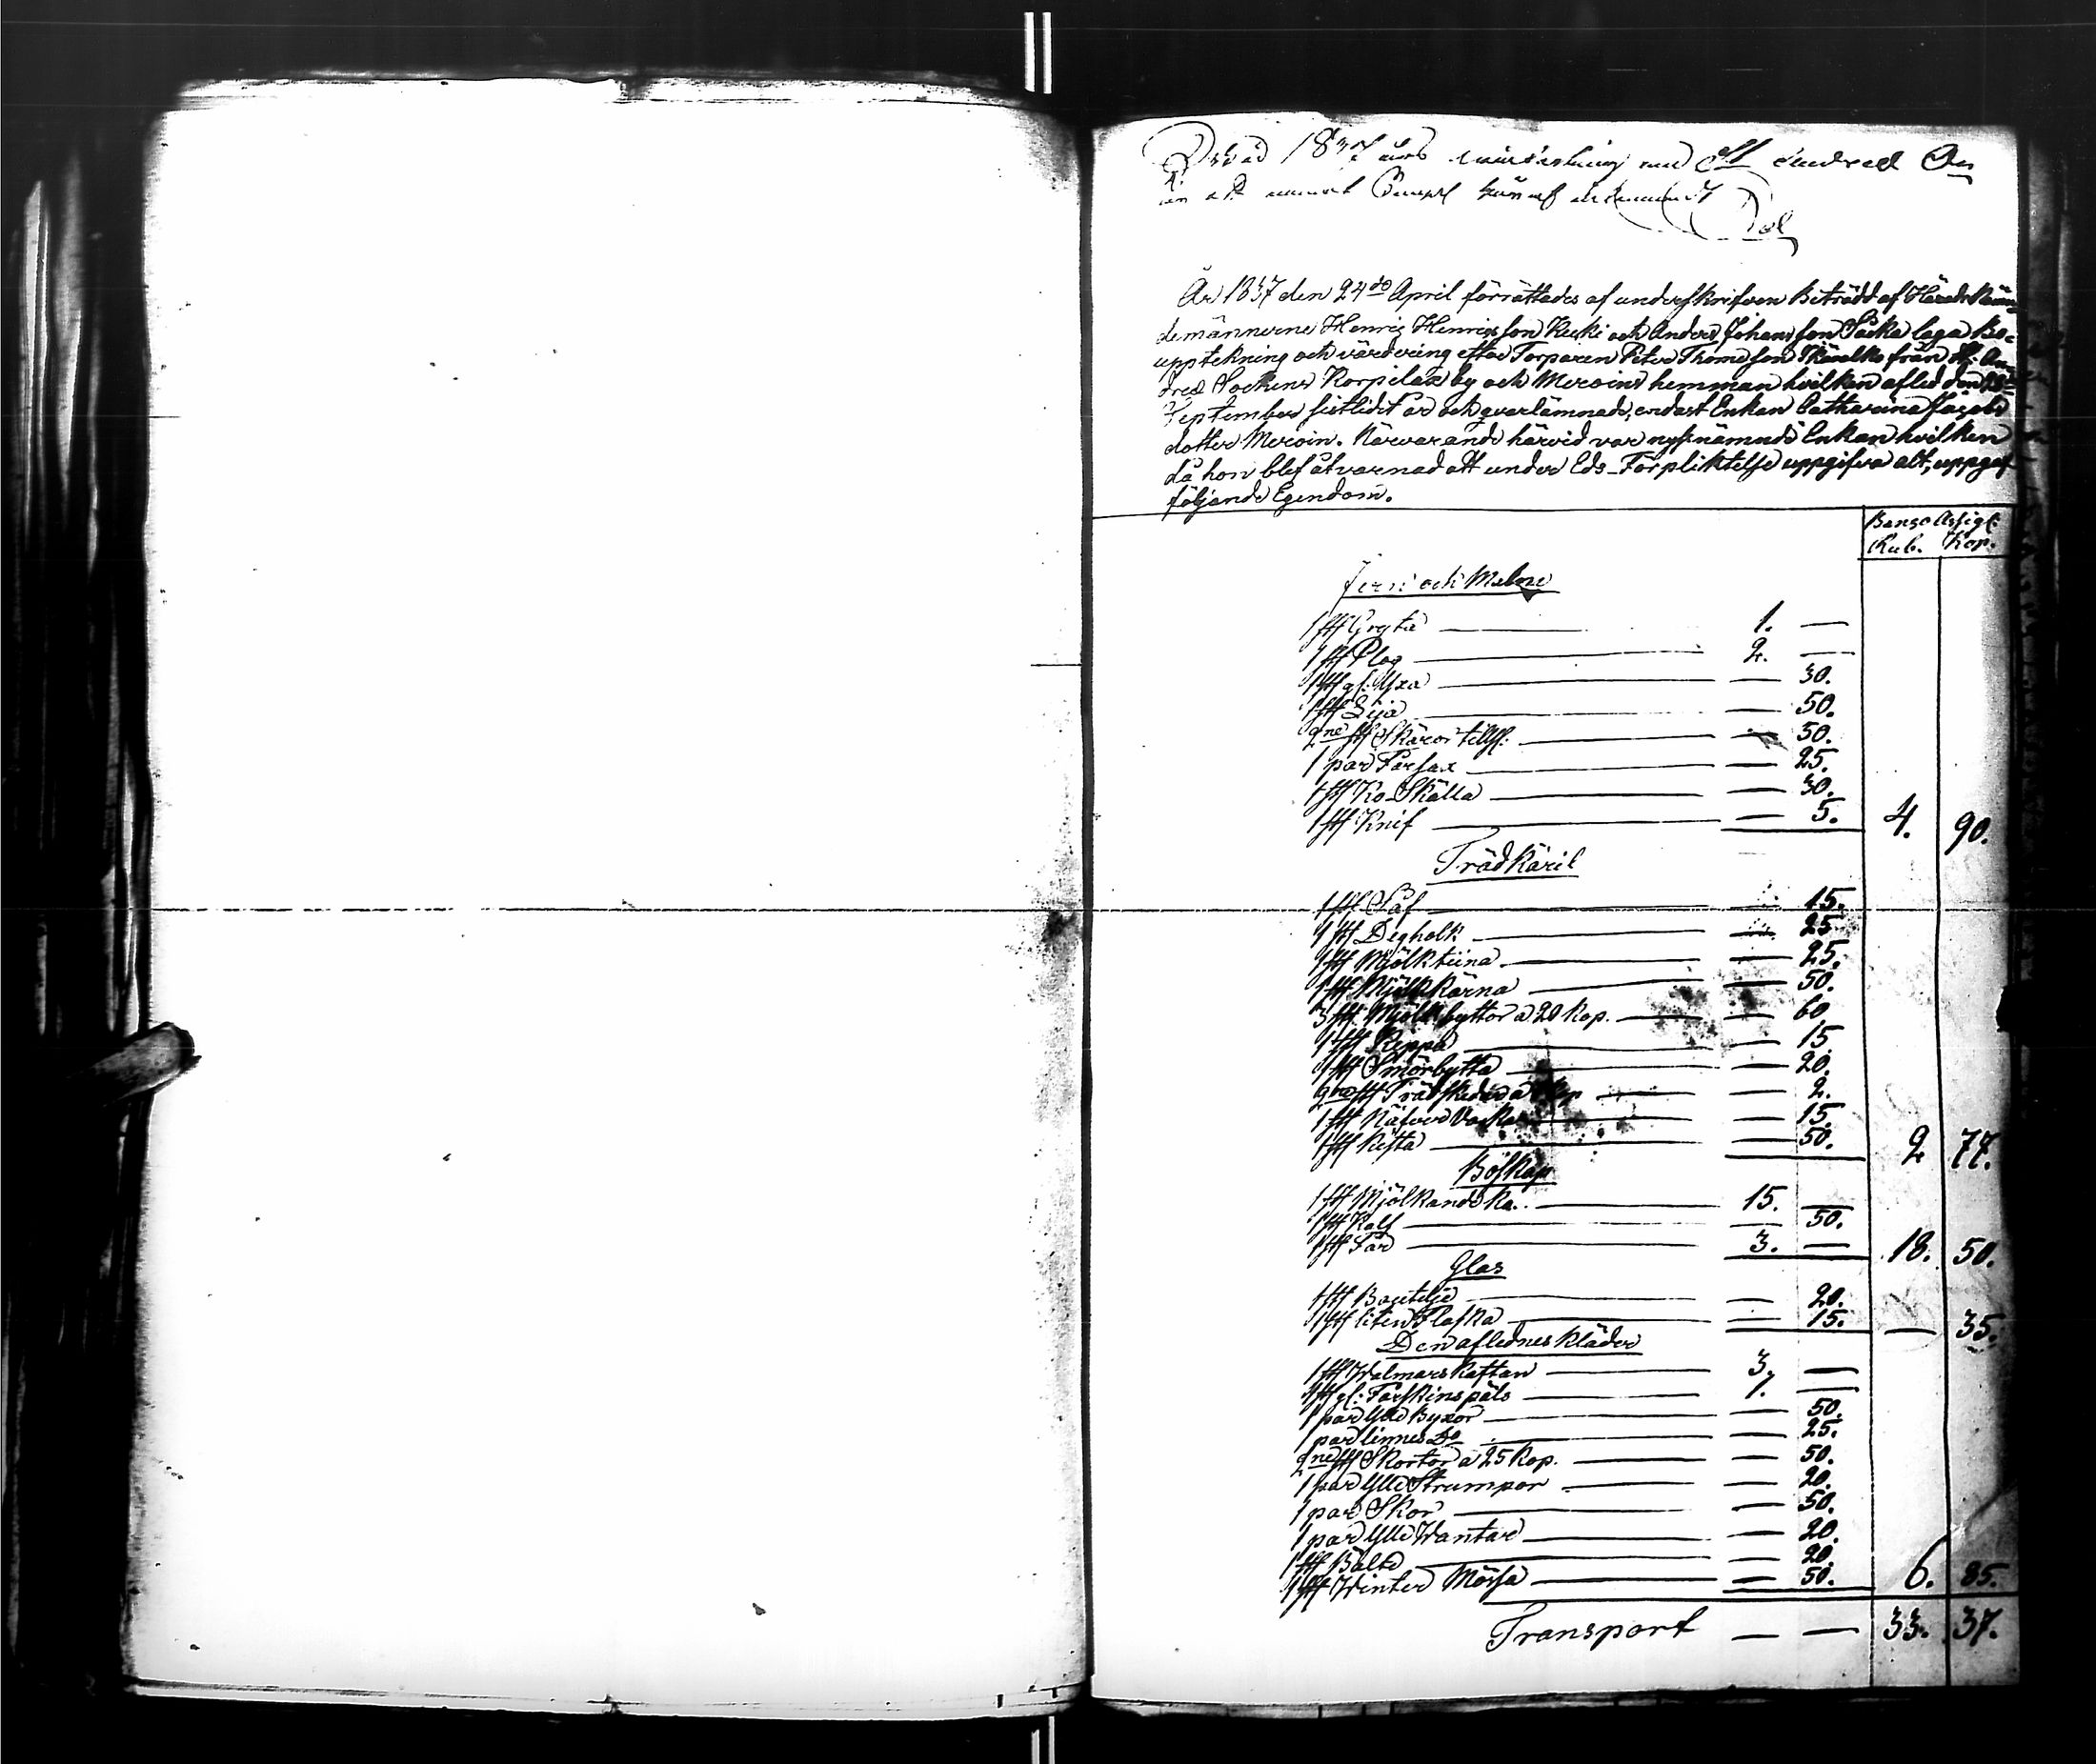 1837 års
År 1837 den 24de April förrättades af underskrifven Biträdd af Härads Nämn
demännerne Henric Henricsson Kecki och Anders Johansson Säska laga Bo-
upptekning och värdering efter Torparen Peter Thomesson från St. An
dreæ Sockens Korpilax by och Meroins hemman hvilken afled den
September sistlidet år och qvarlämnade endast Enkan Catharina
dotter Meroin. Närvarande härvid var nyssnämnde Enkan hvilken
då hon blef åtvarnad att under Eds-Förpliktelse uppgifva alt, uppgaf
följande Egendom.
Banco Assign:
Rub. Kop.
Jern och Malm
1 st Gryta — 1. —
1 st Plog — 2. —
1 st gl. Yxa — 30.
1 st Lija — 50.
2ne st Skäror tills: — 50.
1 par Fårsax — 25.
1 st Ko-Skälla — 30.
1 st Knif — 5. 4. 90.
Trädkäril
1 st Såf — 15.
1 st Degholk — 25
1 st Mjölktiina — 25.
1 st Mjölkkärna — 50.
3 st Mjölkbyttor a 20 kop. — 60
1 st Keppa — 15.
1 st Smörbytta — 20.
2ne st Trädskedar a kop — 2.
1 st Näfver — 15.
1 st Kista — 50. 2 77.
Boskap
1 st Mjölkande Ko — 15. —
1 st Kalf — 50.
1 st Får — 3. — 18. 50.
Glas
1 st Boutelje — 20.
1 st liten Flaska — 15. — 35.
Den aflednes kläder
1 st Walmars Kaftan — 3. —
1 st gl: Fårskinspäls — 1. —
1 par Ylle Byxor — 50.
1 par linnes Do — 25.
2ne st Skortor a 25 kop. — 50.
1 par Ylle Strumpor — 20.
1 par Skor — 50.
1 par Ylle Wantar — 20.
1 st Bälte — 20.
1 st Winter Mössa — 50. 6. 85.
Transport — — 33. 37.